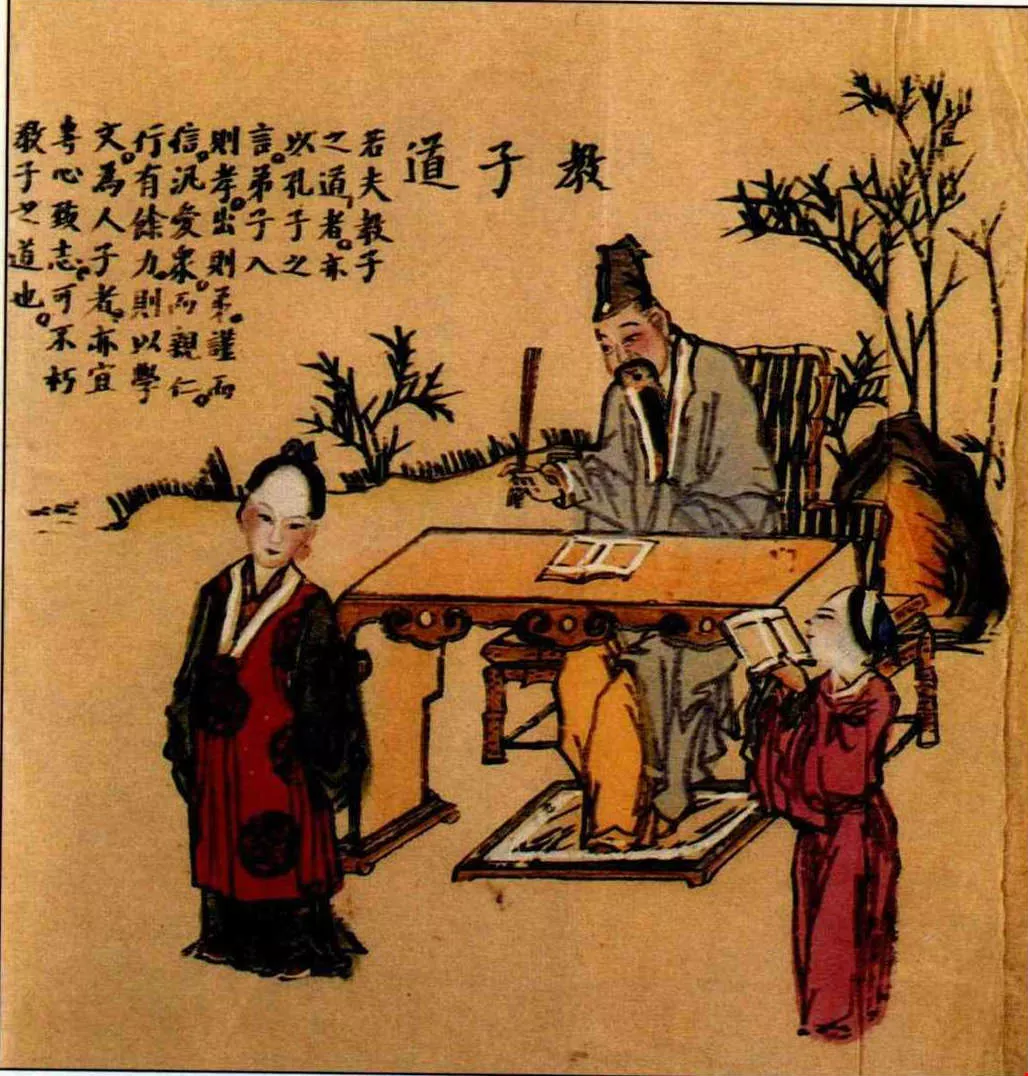 教子道
若夫教子
之道者。亦
以孔子之
言。弟子入
則孝。出則柔。謹而
信。汎愛衆。而親仁。
行有餘力。則以學
文。為人子者。亦宜
專心致志。可不朽
教子之道也。